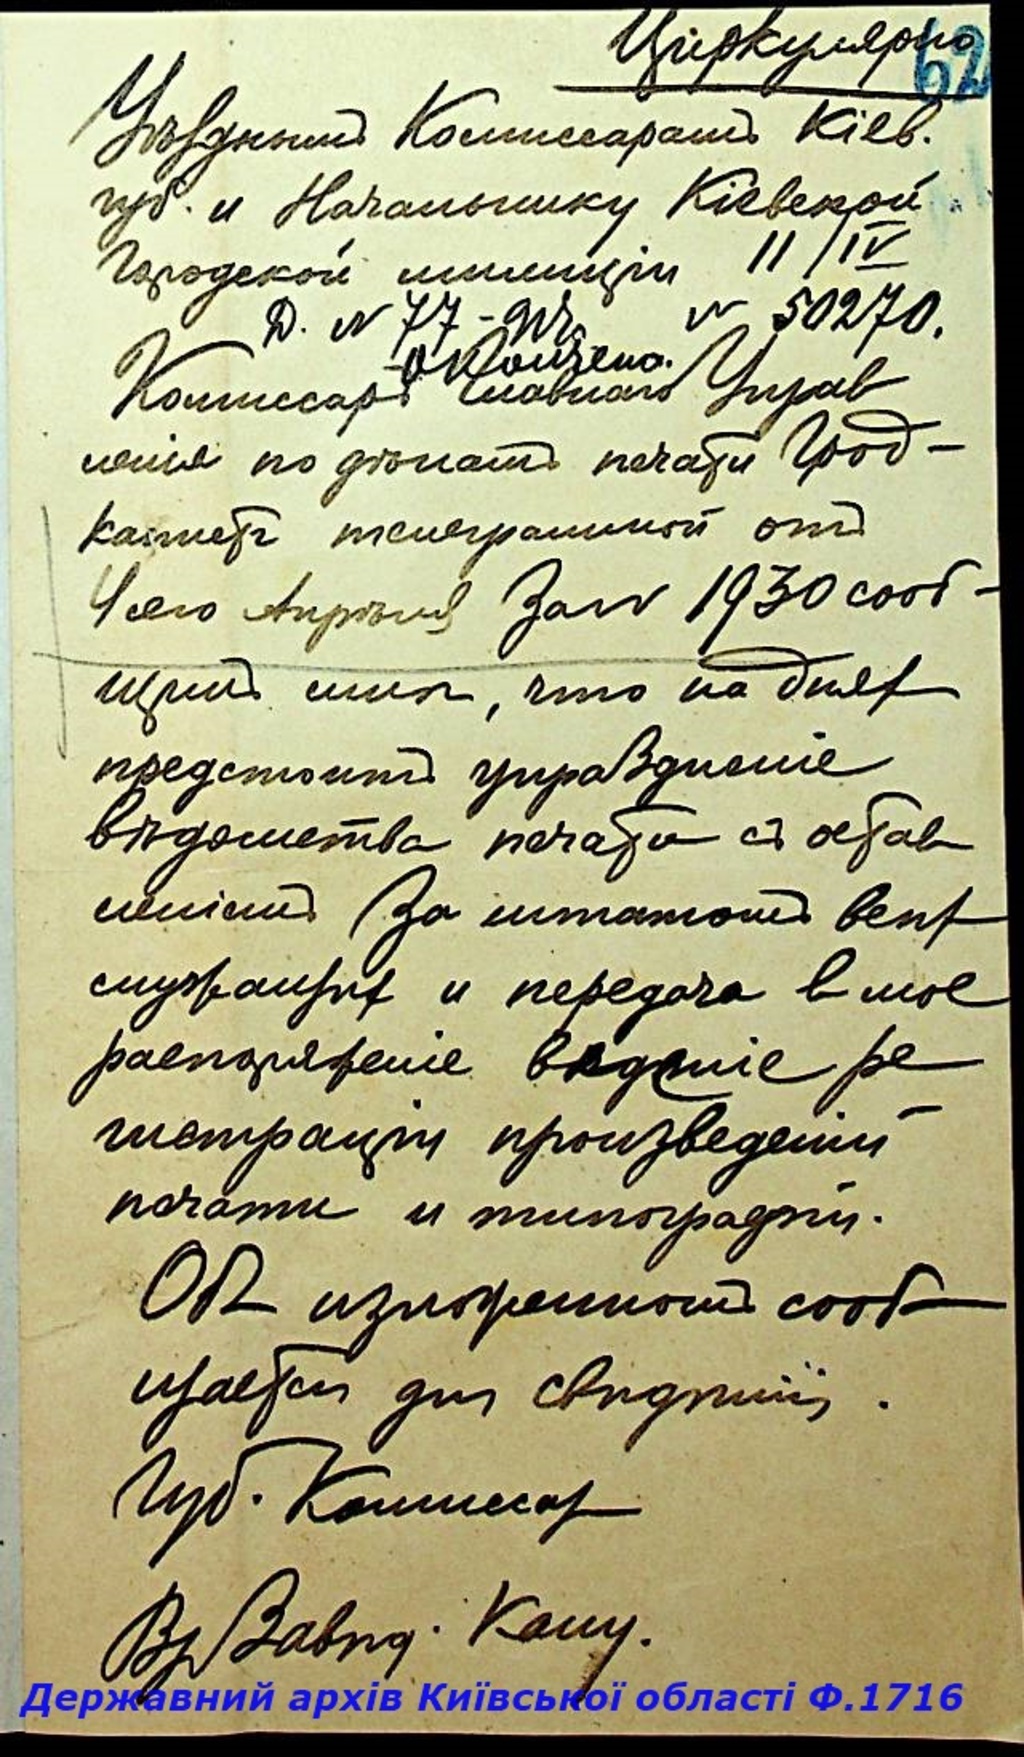 Циркулярно
62
Уѣзднымъ Комиссарамъ Кіев.
губ. и Начальнику Кіевской
Городской милиціи 11/IV
Д. № 77-917. № 50270.
Окончено.
Комиссаръ Главнаго Управ
ленія по дѣламъ печати
телеграммой отъ
4го Апрѣля За № 1930 сооб-
щилъ мнѣ, что на дняхъ
предстоитъ упраздненіе
вѣдомства печати съ остав
леніемъ За штатомъ всѣх
служащихъ и передача в мое
распоряженіе веденіе ре
гистраціи произведеній
печати и типографій.
Объ изложенномъ сооб
щается для свѣдѣнія.
Губ. Комиссар
Вр Завѣд. Канц.
Державний архів Київської області Ф.1716